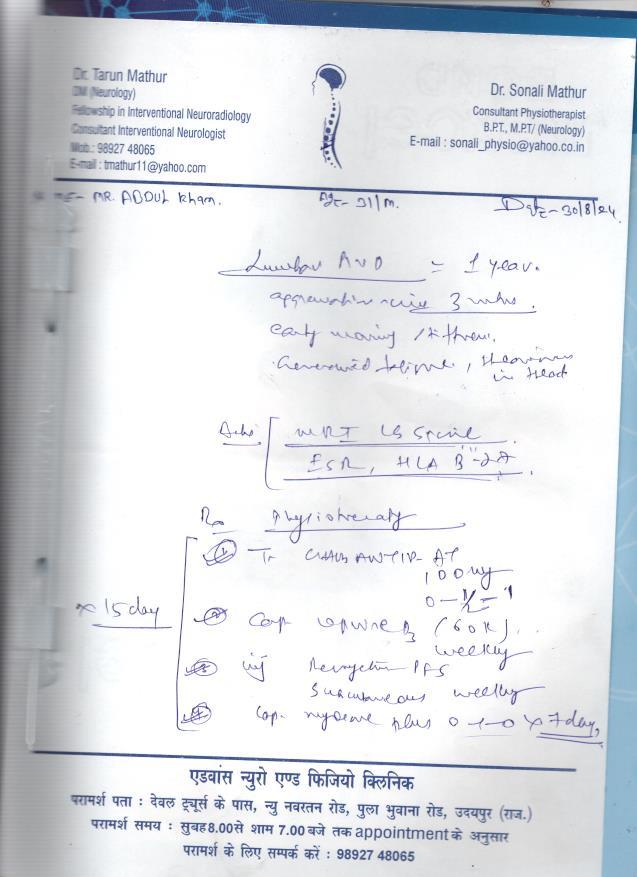 Dr. Tarun Mathur
DM (Neurology)
Fellowship in Interventional Neuroradiology
Consultant Interventional Neurologist
Mob.: 98927 48065
E-mail : tmathur11@yahoo.com
Dr. Sonali Mathur
Consultant Physiotherapist
B.P.T., M.P.T/ (Neurology)
E-mail : sonali_physio@yahoo.co.in
MR. ABDUL Kham.
Age- 31/M.
Date- 30/8/24
= 1 year.
3 mths.
early morning stiffness.
Generalised , Heaviness
in Head
Adv
MRI LS Spine
ESR, HLA B-27
Rx Physiotherapy
x 15 day
1 AT
100 mg
0-½-1
2 Cap (60K)
weekly
3 inj PFS
Subcutaneous weekly
4 Cap. plus 0-1-0 x 7 day,
एडवांस न्युरो एण्ड फिजियो क्लिनिक
परामर्श पता : देवल ट्यूर्स के पास, न्यु नवरतन रोड, पुला भुवाना रोड, उदयपुर (राज.)
परामर्श समय : सुबह 8.00 से शाम 7.00 बजे तक appointment के अनुसार
परामर्श के लिए सम्पर्क करें : 98927 48065